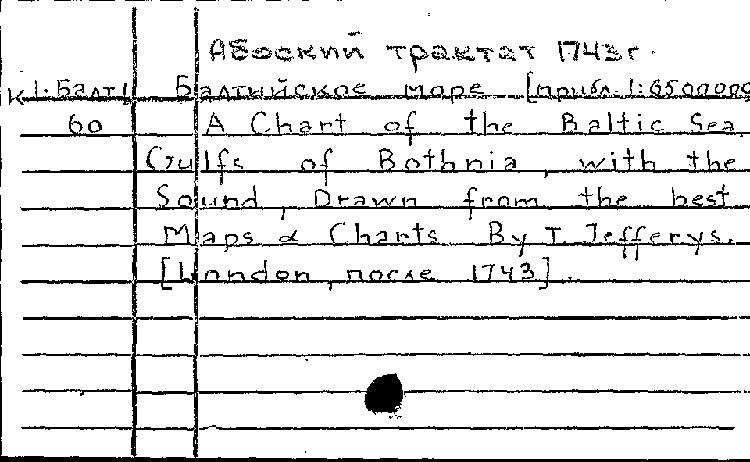 Абоский трактат 1743 г.
К 1-Балт Балтийское море [прибл. 1:6500000
60 A Chart of the Baltic Sea,
Gulfs of Bothnia, with the
Sound, Drawn from the best
Maps & Charts By T. Jefferys.
[London, после 1743].